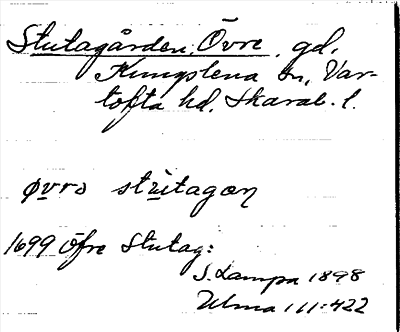 Stutagården, Övre, gd,
Kungslena sn, Var-
tofta hd, Skarab. l.
øvrə strutagan
1699 Öfre Stutag:
S. Lampa 1898
Ulma 111:422